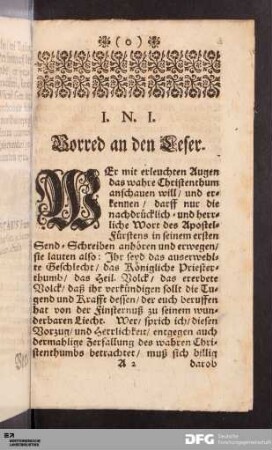 ( o )
I. N. I.
Vorred an den Leser.
WEr mit erleuchten Augen
das wahre Christenthum
anschauen will / und er-
kennen / darff nur die
nachdrücklich- und herr-
liche Wort des Apostel-
Fürstens in seinem ersten
Send-Schreiben anhören und erwegen/
sie lauten also: Ihr seyd das auserwehl-
te Geschlecht / das Königliche Priester-
thumb / das Heil. Volck / das ererbete
Volck / daß ihr verkündigen sollt die Tu-
gend und Krafft dessen / der euch beruffen
hat von der Finsternuß zu seinem wun-
derbaren Liecht. Wer / sprich ich / diesen
Vorzug / und Herrlichkeit / entgegen auch
dermahlige Zerfallung des wahren Chri-
stenthumbs betrachtet / muß sich billig
A 2 darob
DFG Deutsche
Forschungsgemeinschaft